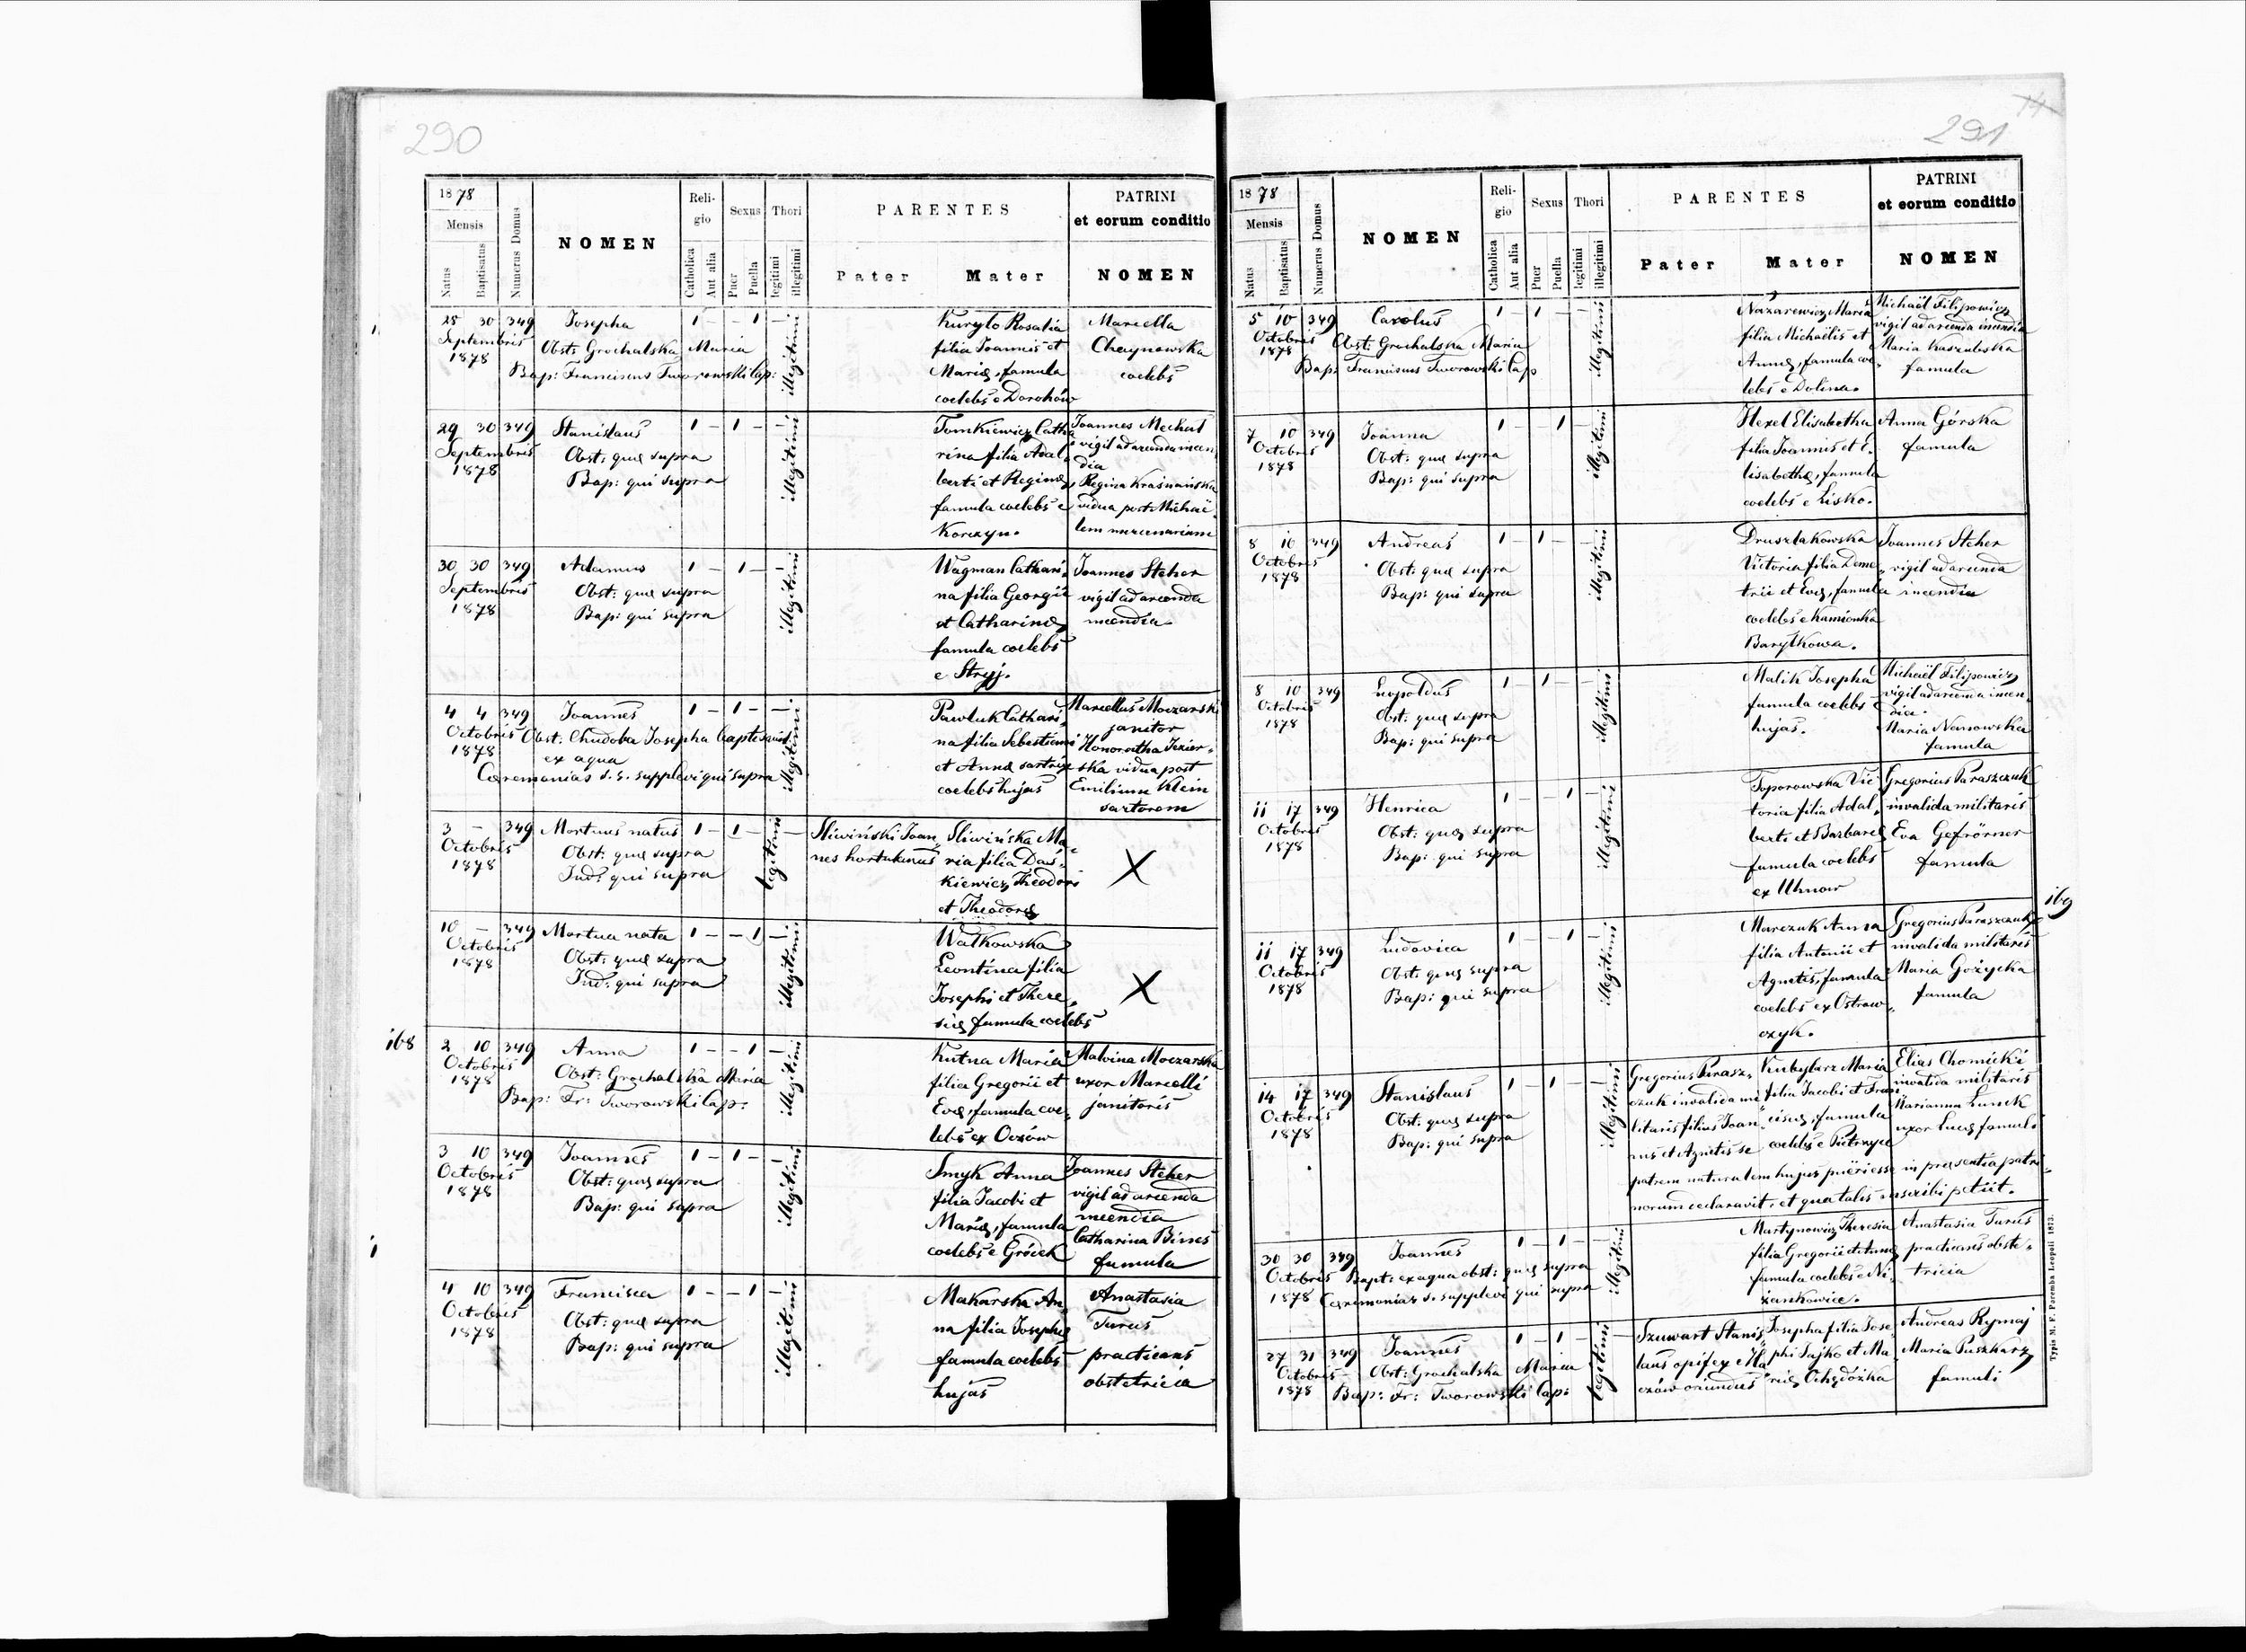 290
1878
Mensis
Natus
Baptisatus
Numerus Domus
NOMEN
Reli-
gio
Catholica
Aut alia
Sexus
Puer
Puella
Thori
legitimi
illegitimi
PARENTES
Pater
Mater
PATRINI
et eorum conditio
NOMEN
28 30 349 Josepha 1 – – 1 – illegitimi Kuryło Rosalia Marcella
Septembris Obst: Grochalska Maria filia Joannis et Chaynowska
1878 Bap: Franciscus Tworowski Cap: Mariæ, famula coelebs
coelebs e Dorohów
29 30 349 Stanislaus 1 – 1 – – illegitimi Tomkiewicz Catha Joannes Mechal
Septembris Obst: quæ supra rina filia Adal vigil ad arcenda incen
1878 Bap: qui supra berti et Reginæ, dia
famula coelebs e Regina Krasnańska
Korczyn. vidua post Michaë
lem mercenarium
30 30 349 Adamus 1 – 1 – – illegitimi Wagman Cathari, Joannes Steher
Septembris Obst: quæ supra na filia Georgii vigil ad arcenda
1878 Bap: qui supra et Catharinæ incendia
famula coelebs
e Stryj.
4 4 349 Joannes 1 – 1 – – illegitimi Pawluk Cathari, Marcellus Moczarski
Octobris Obst: Chudoba Josepha baptisavit na filia Sebestiani janitor
1878 ex aqua et Annæ sartrix Honoratha Jezier-
Cæremonias s. s. supplevi qui supra coelebs hujas ska vidua post
Emilium Klein
sartorem
3 – 349 Mortuus natus 1 – 1 – legitimi – Sliwiński Joan, Sliwińska Ma, X
Octobris Obst: quæ supra nes hortulanus ria filia Das-
1878 Ind: qui supra kiewicz Theodori
et Theodoræ
10 – 349 Mortua nata 1 – – 1 – illegitimi Watkowska X
Octobris Obst: quæ supra Leontina filia
1878 Ind: qui supra Josephi et There,
siæ famula coelebs
168
2 10 349 Anna 1 – – 1 – illegitimi Kutna Maria Malvina Moczarska
Octobris Obst: Grochalska Maria filia Gregorii et uxor Marcelli
1878 Bap: Fr: Tworowski Cap: Evæ, famula coe, janitoris
lebs ex Oczów
3 10 349 Joannes 1 – 1 – – illegitimi Smyk Anna Joannes Steher
Octobris Obst: quæ supra filia Jacobi et vigil ad arcenda
1878 Bap: qui supra Mariæ, famula incendia
coelebs e Gródek Catharina Binns
famula
4 10 349 Francisca 1 – – 1 – illegitimi Makarska An, Anastasia
Octobris Obst: quæ supra na filia Josephæ Turus
1878 Bap: qui supra famula coelebs practicans
hujas obstetricia
291
1878
Mensis
Natus
Baptisatus
Numerus Domus
NOMEN
Reli-
gio
Catholica
Aut alia
Sexus
Puer
Puella
Thori
legitimi
illegitimi
PARENTES
Pater
Mater
PATRINI
et eorum conditio
NOMEN
5 10 349 Carolus 1 – 1 – – illegitimi Nazarewicz Maria Michaël Filipowicz
Octobris Obst: Grochalska Maria filia Michaëlis et vigil ad arcenda incendia
1878 Bap: Franciscus Tworowski Cap Annæ, famula coe- Maria Kaszubska
lebs e Dolina. famula
7 10 349 Joanna 1 – 1 illegitimi Hexel Elisabetha Anna Górska
Octobris Obst: quæ supra filia Joannis et E. famula
1878 Bap: qui supra lisabethæ, famula
coelebs e Lisko.
8 10 349 Andreas 1 – 1 – illegitimi Druszlakowska Joannes Steher
Octobris Obst: quæ supra Victoria filia Deme vigil ad arcenda
1878 Bap: qui supra trii et Evæ, famula incendia
coelebs e Kamionka
Baryłkowa.
8 10 349 Leopoldus 1 – 1 – – illegitimi Malik Josepha Michaël Filipowicz
Octobris Obst: quæ supra famula coelebs vigil ad arcenda incen,
1878 Bap: qui supra hujas. dia.
Maria Nanowska
famula
11 17 349 Henrica 1 – – 1 – illegitimi Toporowska Vic Gregorius Paraszczuk
Octobris Obst: quæ supra toria filia Adal, invalida militaris
1878 Bap: qui supra berti et Barbaræ Eva Gefrörner
famula coelebs famula
ex Uhnow
169
11 17 349 Ludovica 1 – – 1 – illegitimi Marczuk Anna Gregorius Paraszczuk
Octobris Obst: quæ supra filia Antonii et invalida militaris
1878 Bap: qui supra Agnetis, famula Maria Gożycka
coelebs ex Ostrow, famula
czyk.
14 17 349 Stanislaus 1 – 1 – – illegitimi Gregorius Parasz, Kubylarz Maria Elias Chomicki
Octobris Obst: quæ supra czuk invalida mi filia Jacobi et Fran invalida militaris
1878 Bap: qui supra litaris filius Joan- ciscæ, famula Marianna Lunek
nis et Agnetis se coelebs e Pietrzyce uxor Lucæ famul.
patrem naturalem hujus pueri esse in præsentia patri-
norum declaravit, et qua talis inscribi petiit.
30 30 349 Joannes 1 – 1 – – illegitimi Martynowicz Theresia Anastasia Turus
Octobris Bapt: ex aqua obst: quæ supra filia Gregorii et Annæ practicans obste-
1878 Cæremonias s. supplevi qui supra famula coelebs e Ni- tricia
żankowice.
27 31 349 Joannes 1 – 1 – legitimi – Szuwart Stanis, Josepha filia Jose, Andreas Rymaj
Octobris Obst: Grochalska Maria laus opifex phi Sajko et Ma Maria Puszkarz
1878 Bap: Fr: Tworowski Cap: oriundus riæ Ochędożka famuli
Typis M. F. Poremba Leopoli 1873.